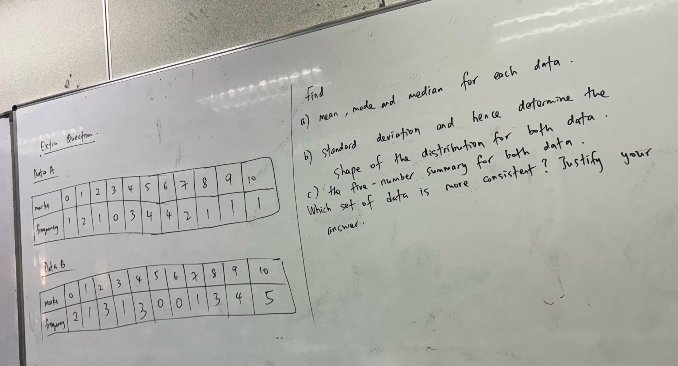 Extra Question
Data A
marks 0 1 2 3 4 5 6 7 8 9 10
frequency 1 2 1 0 3 4 4 2 1 1 1
Data B
Marks 0 1 2 3 4 5 6 7 8 9 10
frequency 2 1 3 1 3 0 0 1 3 4 5
find
a) mean, mode and median for each data.
b) standard deviation and hence determine the
shape of the distribution for both data.
c) the five-number summary for both data.
Which set of data is more consistent? Justify your
answer.